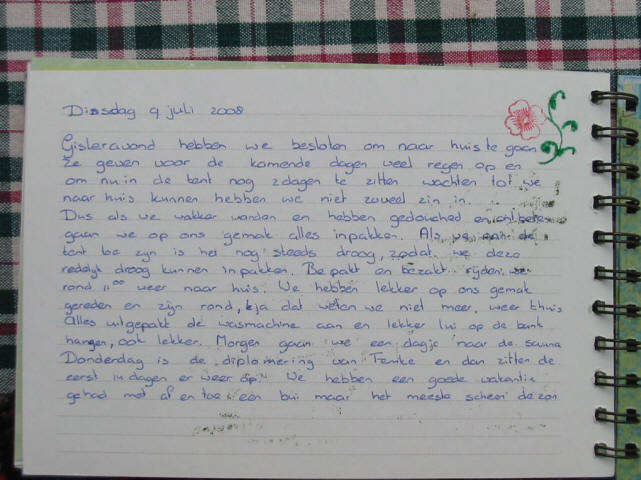 Dinsdag 9 juli 2008
Gisteravond hebben we besloten om naar huis te gaan
Ze geven voor de komende dagen veel regen op en
om nu in de tent nog 2 dagen te zitten wachten tot we
naar huis kunnen hebben we niet zoveel zin in.
Dus als we wakker worden en hebben gedouched en
gaan we op ons gemak alles inpakken. Als we aan de
tent be zijn is het nog steeds droog, zodat we deze
redelijk droog kunnen inpakken. Bepakt en bezakt rijden we
rond 11.00 weer naar huis. We hebben lekker op ons gemak
gereden en zijn rond, tja dat weten we niet meer, weer thuis
Alles uitgepakt de wasmachine aan en lekker lui op de bank
hangen, ook lekker. Morgen gaan we een dagje naar de sauna
Donderdag is de diplomering van Femke en dan zitten de
eerst dagen er weer op. We hebben een goede vakantie
gehad met af en toe een bui maar het meeste scheen de zon